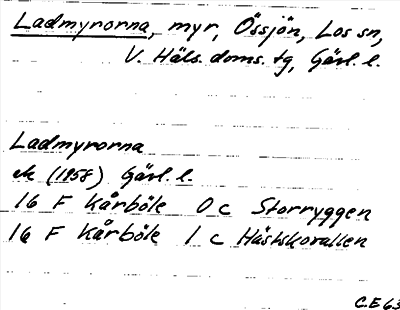 Ladmyrorna, myr, Össjön, Los sn,
V. Häls. doms. tg, Gävl. l.
Ladmyrorna
ek (1958) Gävl. l.
16 F Kårböle 0 c Storryggen
16 F Kårböle 1 c Hästskovallen
C.E 63